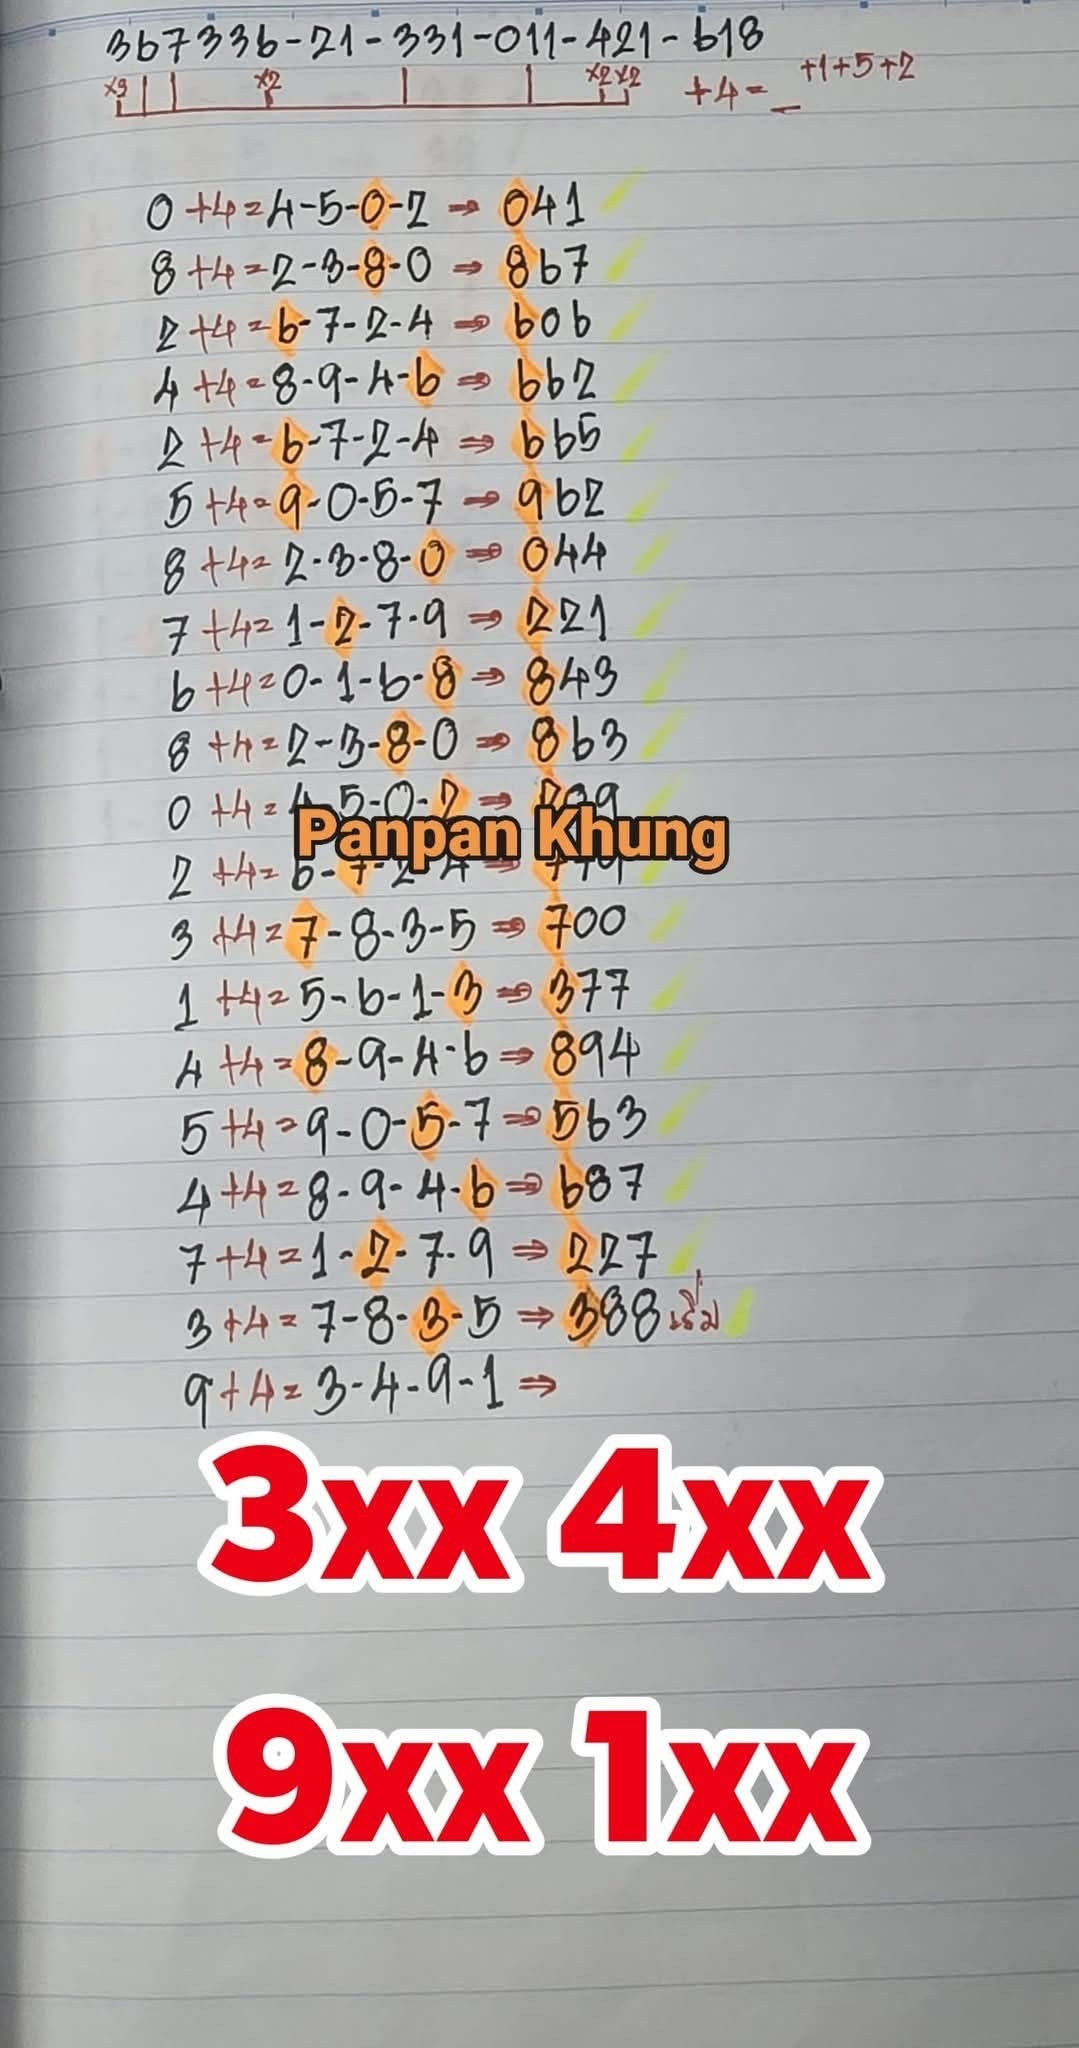 367336-21-331-011-421-618
x9 x2 x2 x2 +4= _ +1+5+2
0+4=4-5-0-2 → 041
8+4=2-3-8-0 ⇒ 867
2+4=6-7-2-4 ⇒ 606
4+4=8-9-4-6 ⇒ 662
2+4=6-7-2-4 ⇒ 665
5+4=9-0-5-7 → 962
8+4=2-3-8-0 ⇒ 044
7+4=1-2-7-9 ⇒ 221
6+4=0-1-6-8 ⇒ 843
8+4=2-3-8-0 ⇒ 863
0+4=4-5-0-2 ⇒ 209
Panpan Khung
2+4=6-7-2-4 ⇒
3+4=7-8-3-5 ⇒ 700
1+4=5-6-1-3 ⇒ 377
4+4=8-9-4-6 ⇒ 894
5+4=9-0-5-7 ⇒ 563
4+4=8-9-4-6 ⇒ 687
7+4=1-2-7-9 ⇒ 227
3+4=7-8-3-5 ⇒ 388 เริ่ม
9+4=3-4-9-1 ⇒
3xx 4xx
9xx 1xx